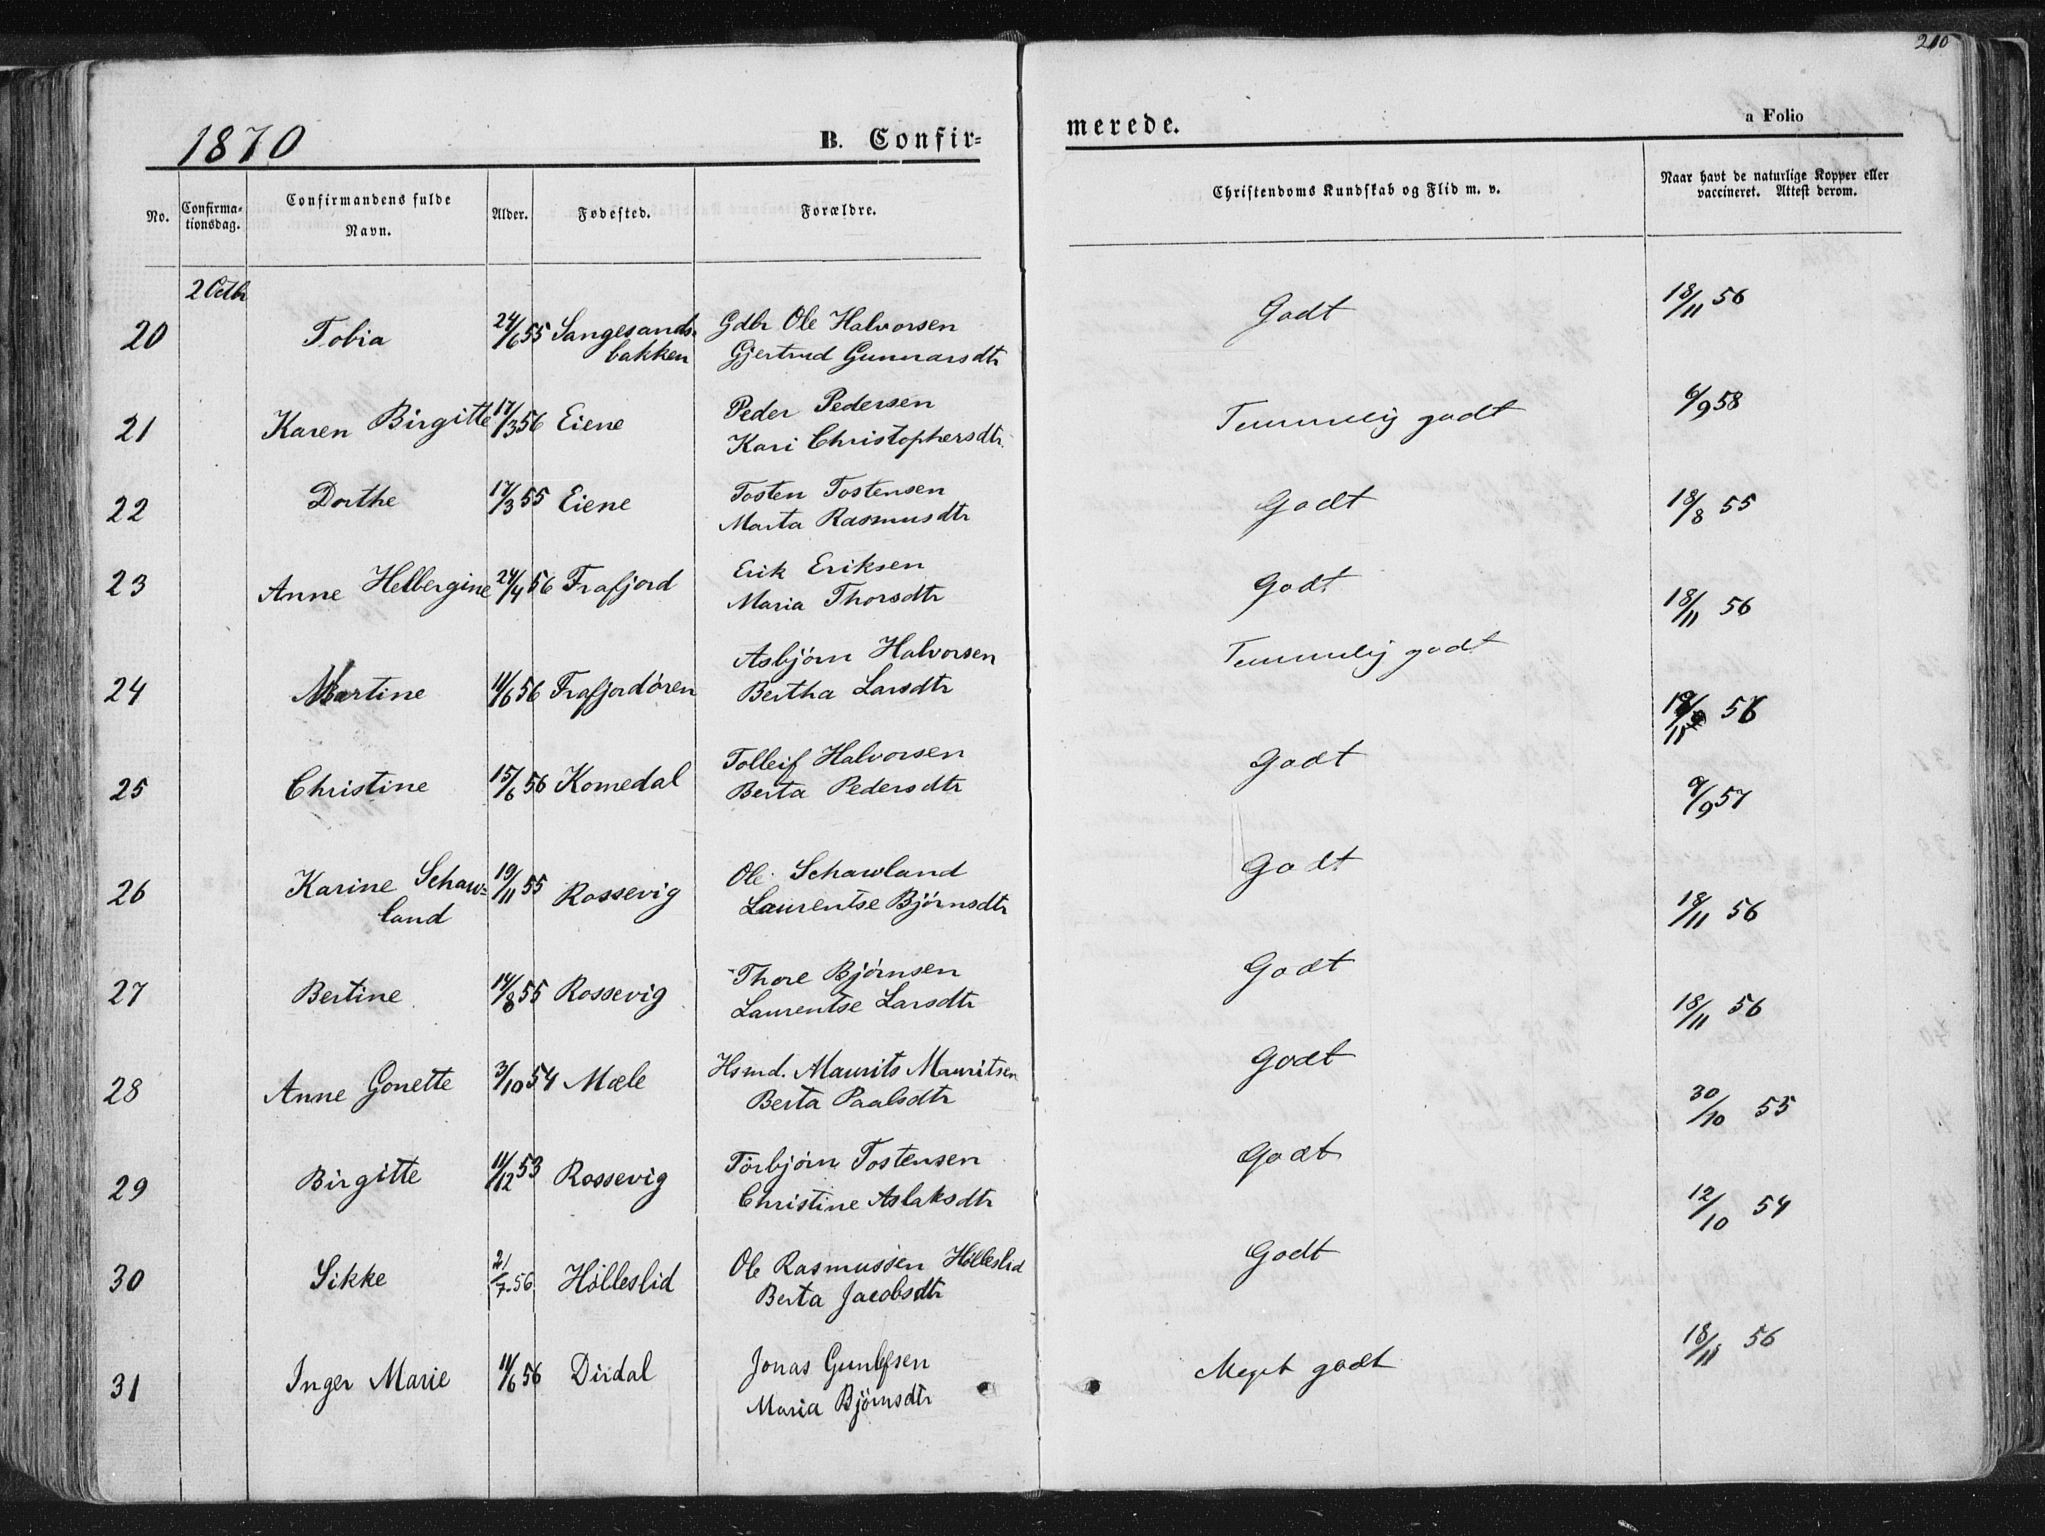 210
1870 B. Confir= merede. a Folio
No. Confirma=tionsdag. Confirmandens fulde Navn. Alder. Fødested. Forældre. Christendoms Kundskab og Flid m. v. Naar havt de naturlige Kopper eller vaccineret. Attest derom.
2 Octbr
20 Tobia 24/6 55 Sangesands- Gdbr Ole Halvorsen Godt 18/11 56
bakken Gjertrud Gunnarsdtr
21 Karen Birgitte 17/3 56 Eiene Peder Pedersen Temmelig godt 6/9 58
Kari Christophersdtr
22 Dorthe 17/3 55 Eiene Tosten Tostensen Godt 18/8 55
Marta Rasmusdtr
23 Anne Helbergine 24/4 56 Frafjord Erik Eriksen Godt 18/11 56
Maria Thorsdtr
24 Martine 11/6 56 Frafjordøren Asbjørn Halvorsen Temmelig godt 18/11 56
Bertha Larsdtr
25 Christine 15/6 56 Komedal Tolleif Halvorsen Godt 9/9 57
Berta Pedersdtr
26 Karine Schaw= 19/11 55 Rossevig Ole Schawland Godt 18/11 56
land Laurentse Bjørnsdtr
27 Bertine 14/8 55 Rossevig Thore Bjørnsen Godt 18/11 56
Laurentse Larsdtr
28 Anne Gonette 3/10 54 Mæle Hsmd. Maurits Mauritsen Godt 30/10 55
Berta Paalsdtr
29 Birgitte 11/12 53 Rossevig Torbjørn Tostensen Godt 12/10 54
Christine Aslaksdtr
30 Sikke 21/7 56 Hølleslid Ole Rasmussen Hølleslid Godt
Berta Jacobsdtr
31 Inger Marie 11/6 56 Dirdal Jonas Gunlefsen Meget godt 18/11 56
Maria Bjørnsdtr